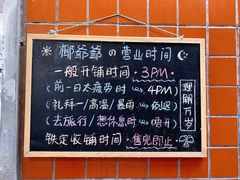 椰爷爷の营业时间
一般开铺时间·3PM·
(前一日太疲劳时 → 4PM)
(礼拜一/高温/暴雨 → 勿返)
(去旅行/想休息时 → 唔开)
铁定收铺时间·售完即止·
理解万岁